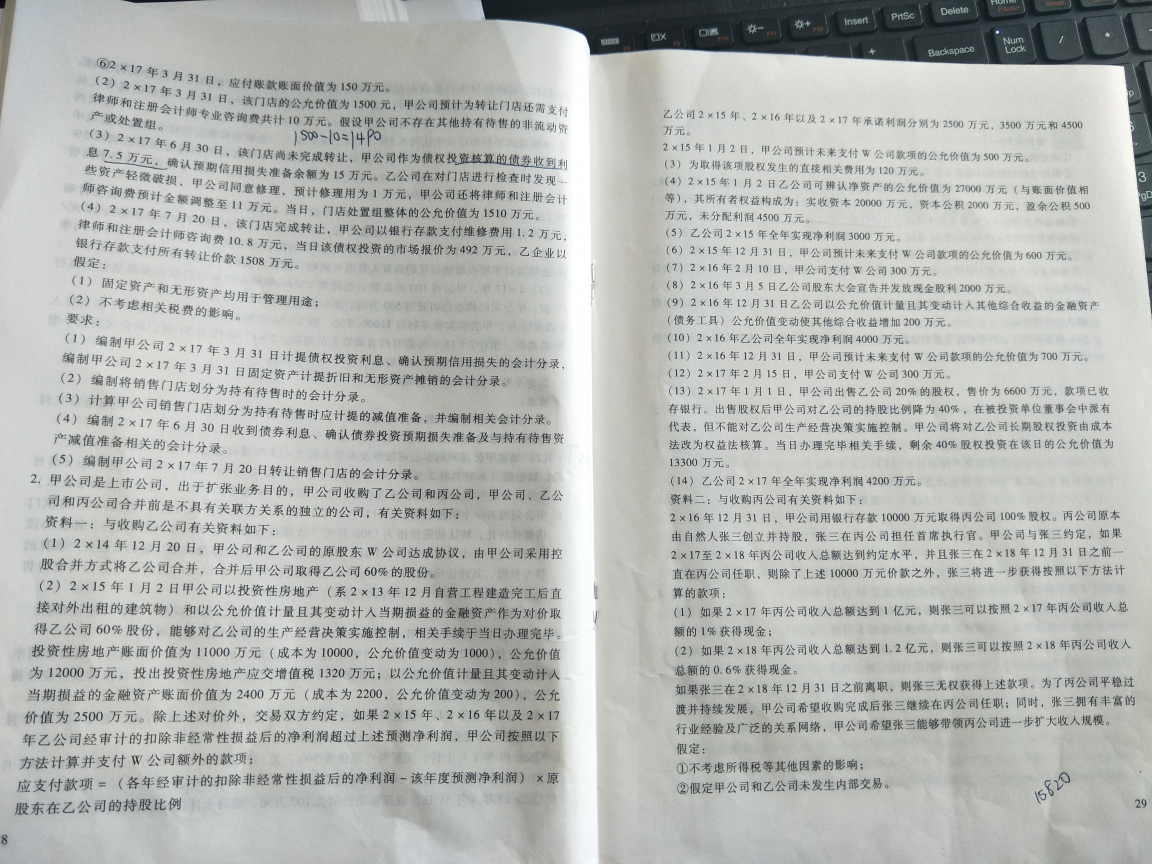 ⑥2×17年3月31日，应付账款账面价值为150万元。
（2）2×17年3月31日，该门店的公允价值为1500元，甲公司预计为转让门店还需支付
律师和注册会计师专业咨询费共计10万元。假设甲公司不存在其他持有待售的非流动资
产或处置组。
1500-10=1490
（3）2×17年6月30日，该门店尚未完成转让，甲公司作为债权投资核算的债券收到利
息7.5万元，确认预期信用损失准备余额为15万元。乙公司在对门店进行检查时发现一
些资产轻微破损，甲公司同意修理，预计修理用为1万元，甲公司还将律师和注册会计
师咨询费预计金额调整至11万元。当日，门店处置组整体的公允价值为1510万元。
（4）2×17年7月20日，该门店完成转让，甲公司以银行存款支付维修费用1.2万元，
律师和注册会计师咨询费10.8万元，当日该债权投资的市场报价为492万元，乙企业以
银行存款支付所有转让价款1508万元。
假定：
（1）固定资产和无形资产均用于管理用途；
（2）不考虑相关税费的影响。
要求：
（1）编制甲公司2×17年3月31日计提债权投资利息、确认预期信用损失的会计分录，
编制甲公司2×17年3月31日固定资产计提折旧和无形资产摊销的会计分录。
（2）编制将销售门店划分为持有待售时的会计分录。
（3）计算甲公司销售门店划分为持有待售时应计提的减值准备，并编制相关会计分录。
（4）编制2×17年6月30日收到债券利息、确认债券投资预期损失准备及与持有待售资
产减值准备相关的会计分录。
（5）编制甲公司2×17年7月20日转让销售门店的会计分录。
2. 甲公司是上市公司，出于扩张业务目的，甲公司收购了乙公司和丙公司，甲公司、乙公
司和丙公司合并前是不具有关联方关系的独立的公司，有关资料如下：
资料一：与收购乙公司有关资料如下：
（1）2×14年12月20日，甲公司和乙公司的原股东W公司达成协议，由甲公司采用控
股合并方式将乙公司合并，合并后甲公司取得乙公司60%的股份。
（2）2×15年1月2日甲公司以投资性房地产（系2×13年12月自营工程建造完工后直
接对外出租的建筑物）和以公允价值计量且其变动计入当期损益的金融资产作为对价取
得乙公司60%股份，能够对乙公司的生产经营决策实施控制，相关手续于当日办理完毕。
投资性房地产账面价值为11000万元（成本为10000，公允价值变动为1000），公允价值
为12000万元，投出投资性房地产应交增值税1320万元；以公允价值计量且其变动计入
当期损益的金融资产账面价值为2400万元（成本为2200，公允价值变动为200），公允
价值为2500万元。除上述对价外，交易双方约定，如果2×15年、2×16年以及2×17
年乙公司经审计的扣除非经常性损益后的净利润超过上述预测净利润，甲公司按照以下
方法计算并支付W公司额外的款项：
应支付款项＝（各年经审计的扣除非经常性损益后的净利润－该年度预测净利润）×原
股东在乙公司的持股比例
8
乙公司2×15年、2×16年以及2×17年承诺利润分别为2500万元，3500万元和4500
万元。
2×15年1月2日，甲公司预计未来支付W公司款项的公允价值为500万元。
（3）为取得该项股权发生的直接相关费用为120万元。
（4）2×15年1月2日乙公司可辨认净资产的公允价值为27000万元（与账面价值相
等），其所有者权益构成为：实收资本20000万元，资本公积2000万元，盈余公积500
万元，未分配利润4500万元。
（5）乙公司2×15年全年实现净利润3000万元。
（6）2×15年12月31日，甲公司预计未来支付W公司款项的公允价值为600万元。
（7）2×16年2月10日，甲公司支付W公司300万元。
（8）2×16年3月5日乙公司股东大会宣告并发放现金股利2000万元。
（9）2×16年12月31日乙公司以公允价值计量且其变动计入其他综合收益的金融资产
（债务工具）公允价值变动使其他综合收益增加200万元。
（10）2×16年乙公司全年实现净利润4000万元。
（11）2×16年12月31日，甲公司预计未来支付W公司款项的公允价值为700万元。
（12）2×17年2月15日，甲公司支付W公司300万元。
（13）2×17年1月1日，甲公司出售乙公司20%的股权，售价为6600万元，款项已收
存银行。出售股权后甲公司对乙公司的持股比例降为40%，在被投资单位董事会中派有
代表，但不能对乙公司生产经营决策实施控制。甲公司将对乙公司长期股权投资由成本
法改为权益法核算。当日办理完毕相关手续，剩余40%股权投资在该日的公允价值为
13300万元。
（14）乙公司2×17年全年实现净利润4200万元。
资料二：与收购丙公司有关资料如下：
2×16年12月31日，甲公司用银行存款10000万元取得丙公司100%股权。丙公司原本
由自然人张三创立并持股，张三在丙公司担任首席执行官。甲公司与张三约定，如果
2×17至2×18年丙公司收入总额达到约定水平，并且张三在2×18年12月31日之前一
直在丙公司任职，则除了上述10000万元价款之外，张三将进一步获得按照以下方法计
算的款项：
（1）如果2×17年丙公司收入总额达到1亿元，则张三可以按照2×17年丙公司收入总
额的1%获得现金；
（2）如果2×18年丙公司收入总额达到1.2亿元，则张三可以按照2×18年丙公司收入
总额的0.6%获得现金。
如果张三在2×18年12月31日之前离职，则张三无权获得上述款项。为了丙公司平稳过
渡并持续发展，甲公司希望收购完成后张三继续在丙公司任职；同时，张三拥有丰富的
行业经验及广泛的关系网络，甲公司希望张三能够带领丙公司进一步扩大收入规模。
假定：
①不考虑所得税等其他因素的影响；
②假定甲公司和乙公司未发生内部交易。
15820
29
Insert
PrtSc
Delete
Home
Backspace
Num
Lock